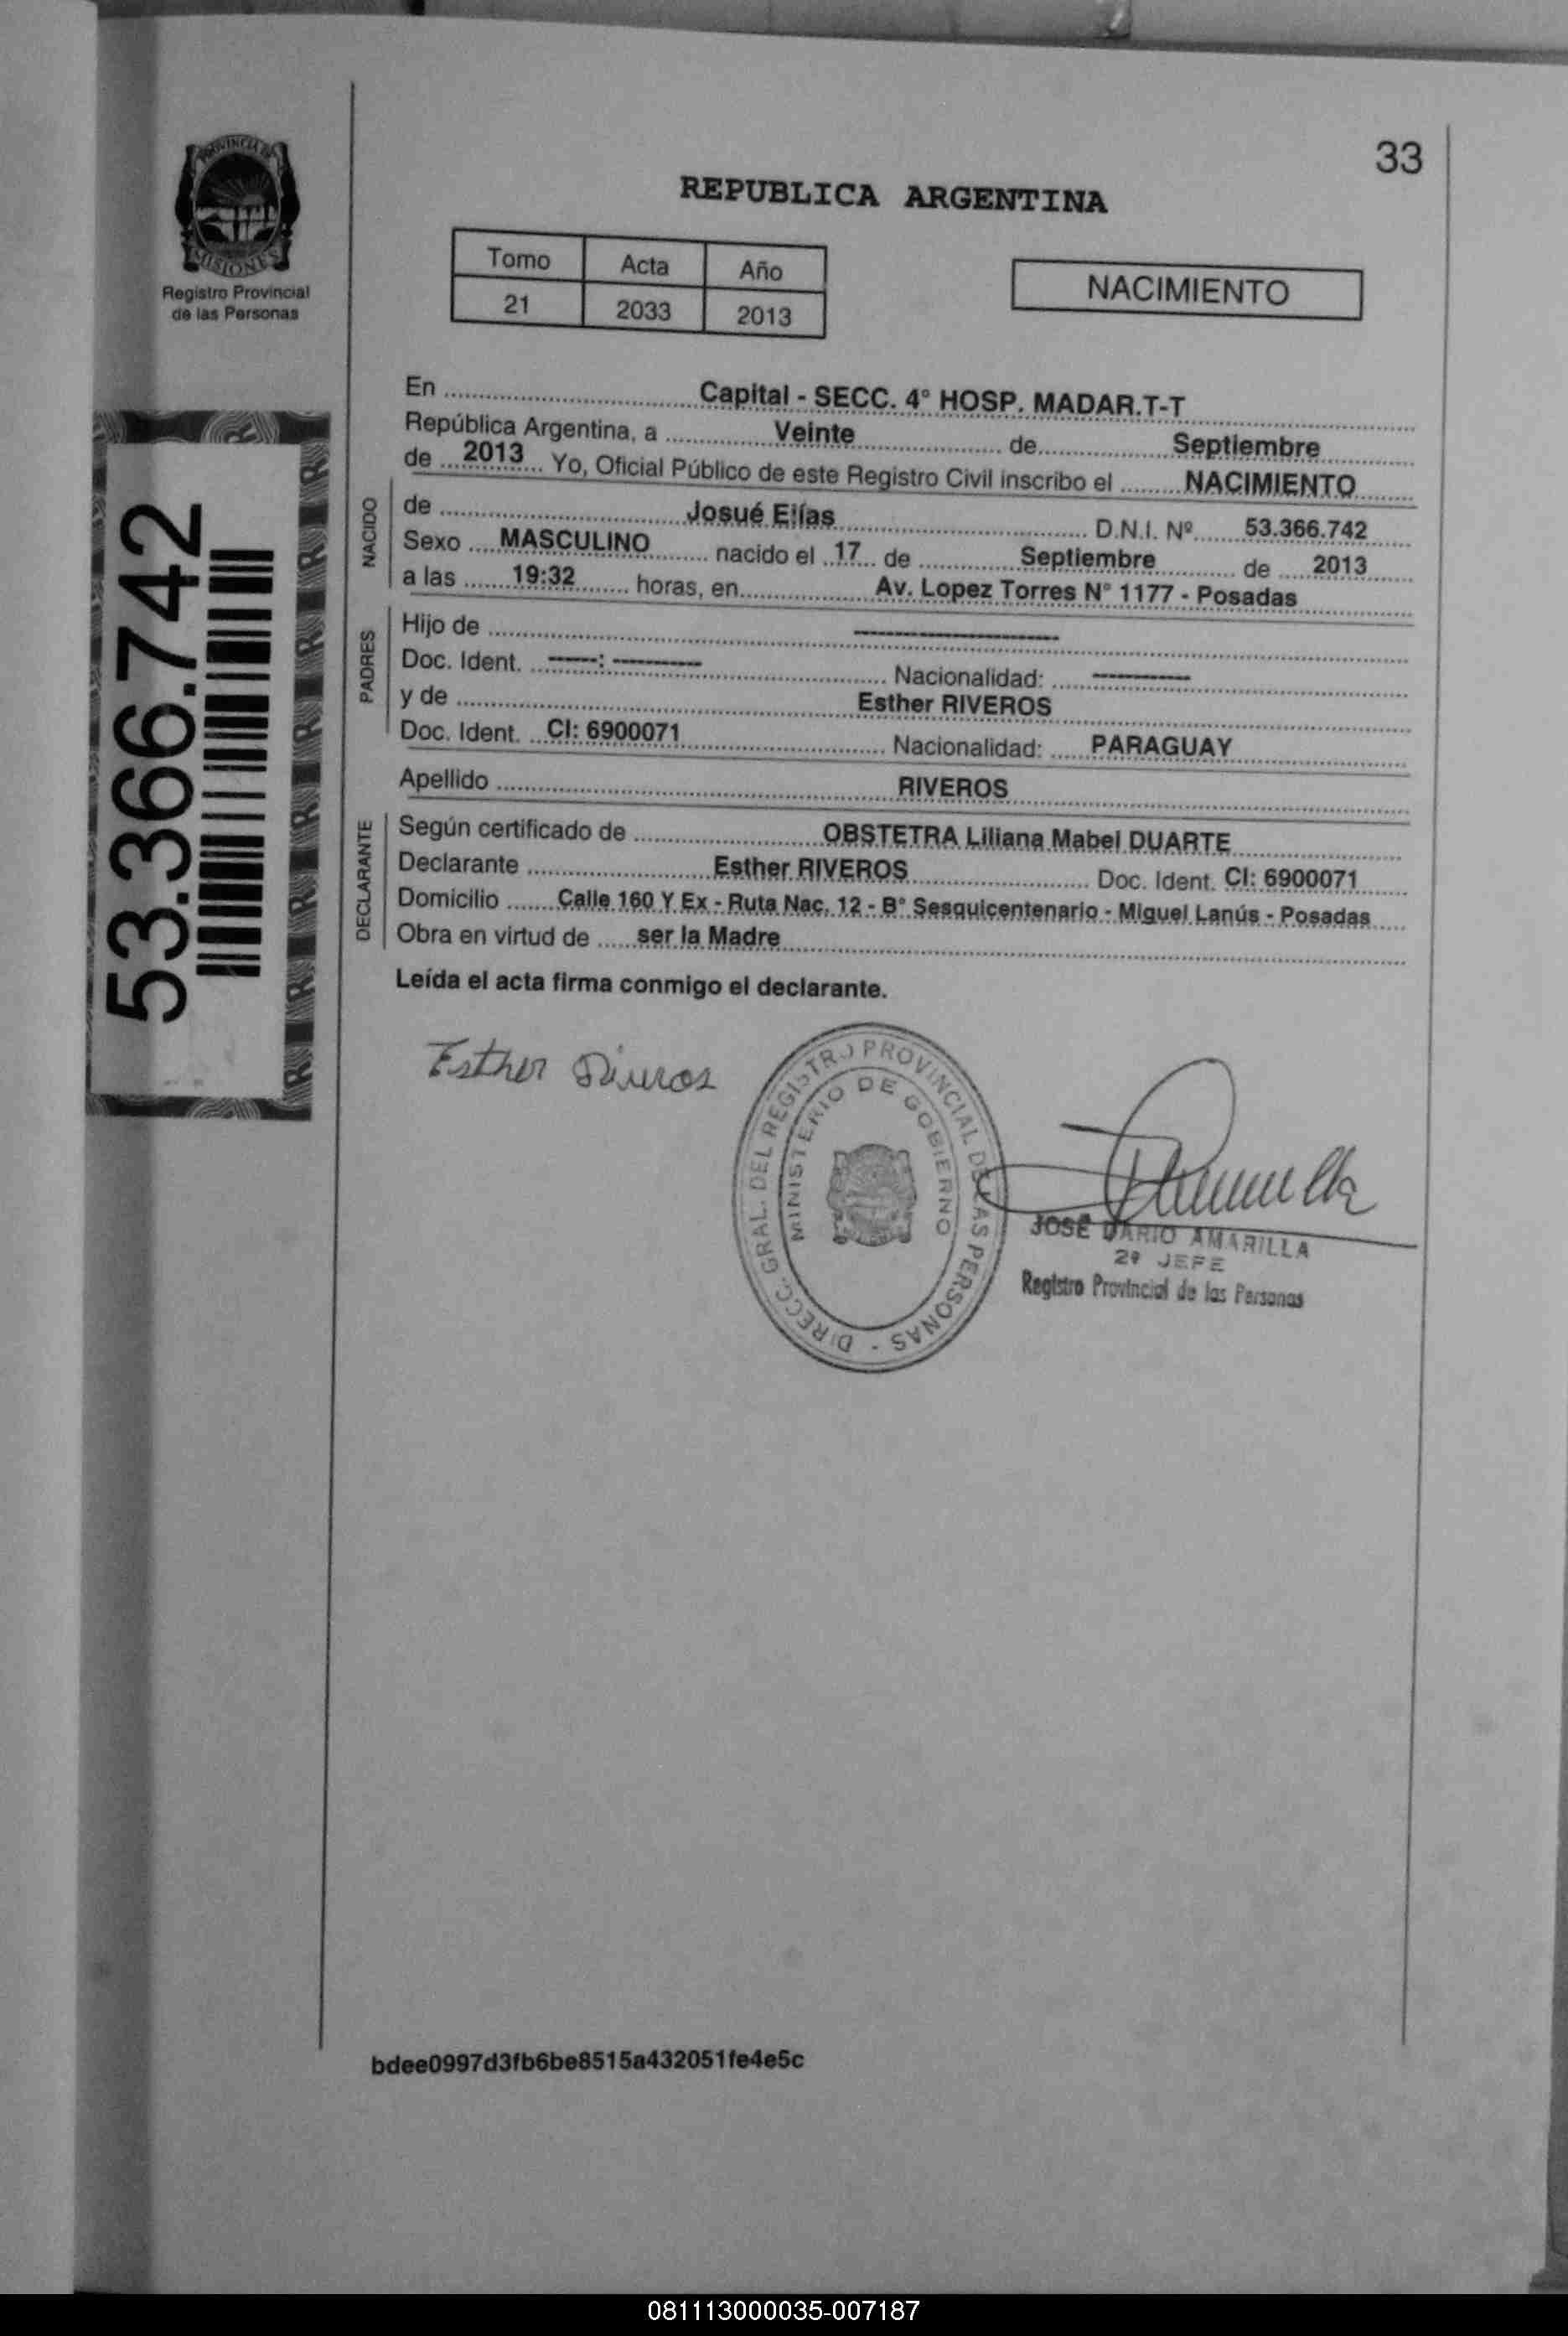 33
PROVINCIA DE
MISIONES
Registro Provincial
de las Personas
REPUBLICA ARGENTINA
Tomo Acta Año
21 2033 2013
NACIMIENTO
53.366.742
En ........ Capital - SECC. 4° HOSP. MADAR.T-T
República Argentina, a ........ Veinte ........ de ........ Septiembre
de .... 2013 .... Yo, Oficial Público de este Registro Civil inscribo el ........ NACIMIENTO
NACIDO
de ........ Josué Elías ........ D.N.I. Nº ....... 53.366.742
Sexo .... MASCULINO ........ nacido el .. 17 .. de ........ Septiembre ........ de ..... 2013
a las ....... 19:32 ....... horas, en ........ Av. Lopez Torres N° 1177 - Posadas
PADRES
Hijo de ........ --------------------
Doc. Ident. .. -----: --------- ........ Nacionalidad: .... ----------
y de ........ Esther RIVEROS
Doc. Ident. .. CI: 6900071 ........ Nacionalidad: ..... PARAGUAY
Apellido ........ RIVEROS
DECLARANTE
Según certificado de ........ OBSTETRA Liliana Mabel DUARTE
Declarante ........ Esther RIVEROS ........ Doc. Ident. CI: 6900071
Domicilio ....... Calle 160 Y Ex - Ruta Nac. 12 - B° Sesquicentenario - Miguel Lanús - Posadas
Obra en virtud de ..... ser la Madre
Leída el acta firma conmigo el declarante.
Esther Riveros
DIRECC. GRAL. DEL REGISTRO PROVINCIAL DE LAS PERSONAS -
MINISTERIO DE GOBIERNO
JOSÉ DARIO AMARILLA
2º JEFE
Registro Provincial de las Personas
bdee0997d3fb6be8515a432051fe4e5c
081113000035-007187